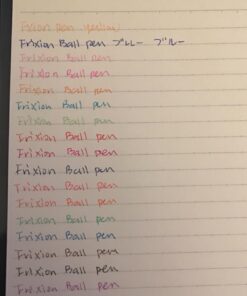 Frixion Ball pen ブルー ブルー
Frixion Ball pen
Frixion Ball pen
Frixion Ball pen
Frixion Ball pen
Frixion Ball pen
Frixion Ball pen
Frixion Ball pen
Frixion Ball pen
Frixion Ball pen
Frixion Ball pen
Frixion Ball pen
Frixion Ball pen
Frixion Ball pen
Frixion Ball pen
Frixion Ball pen